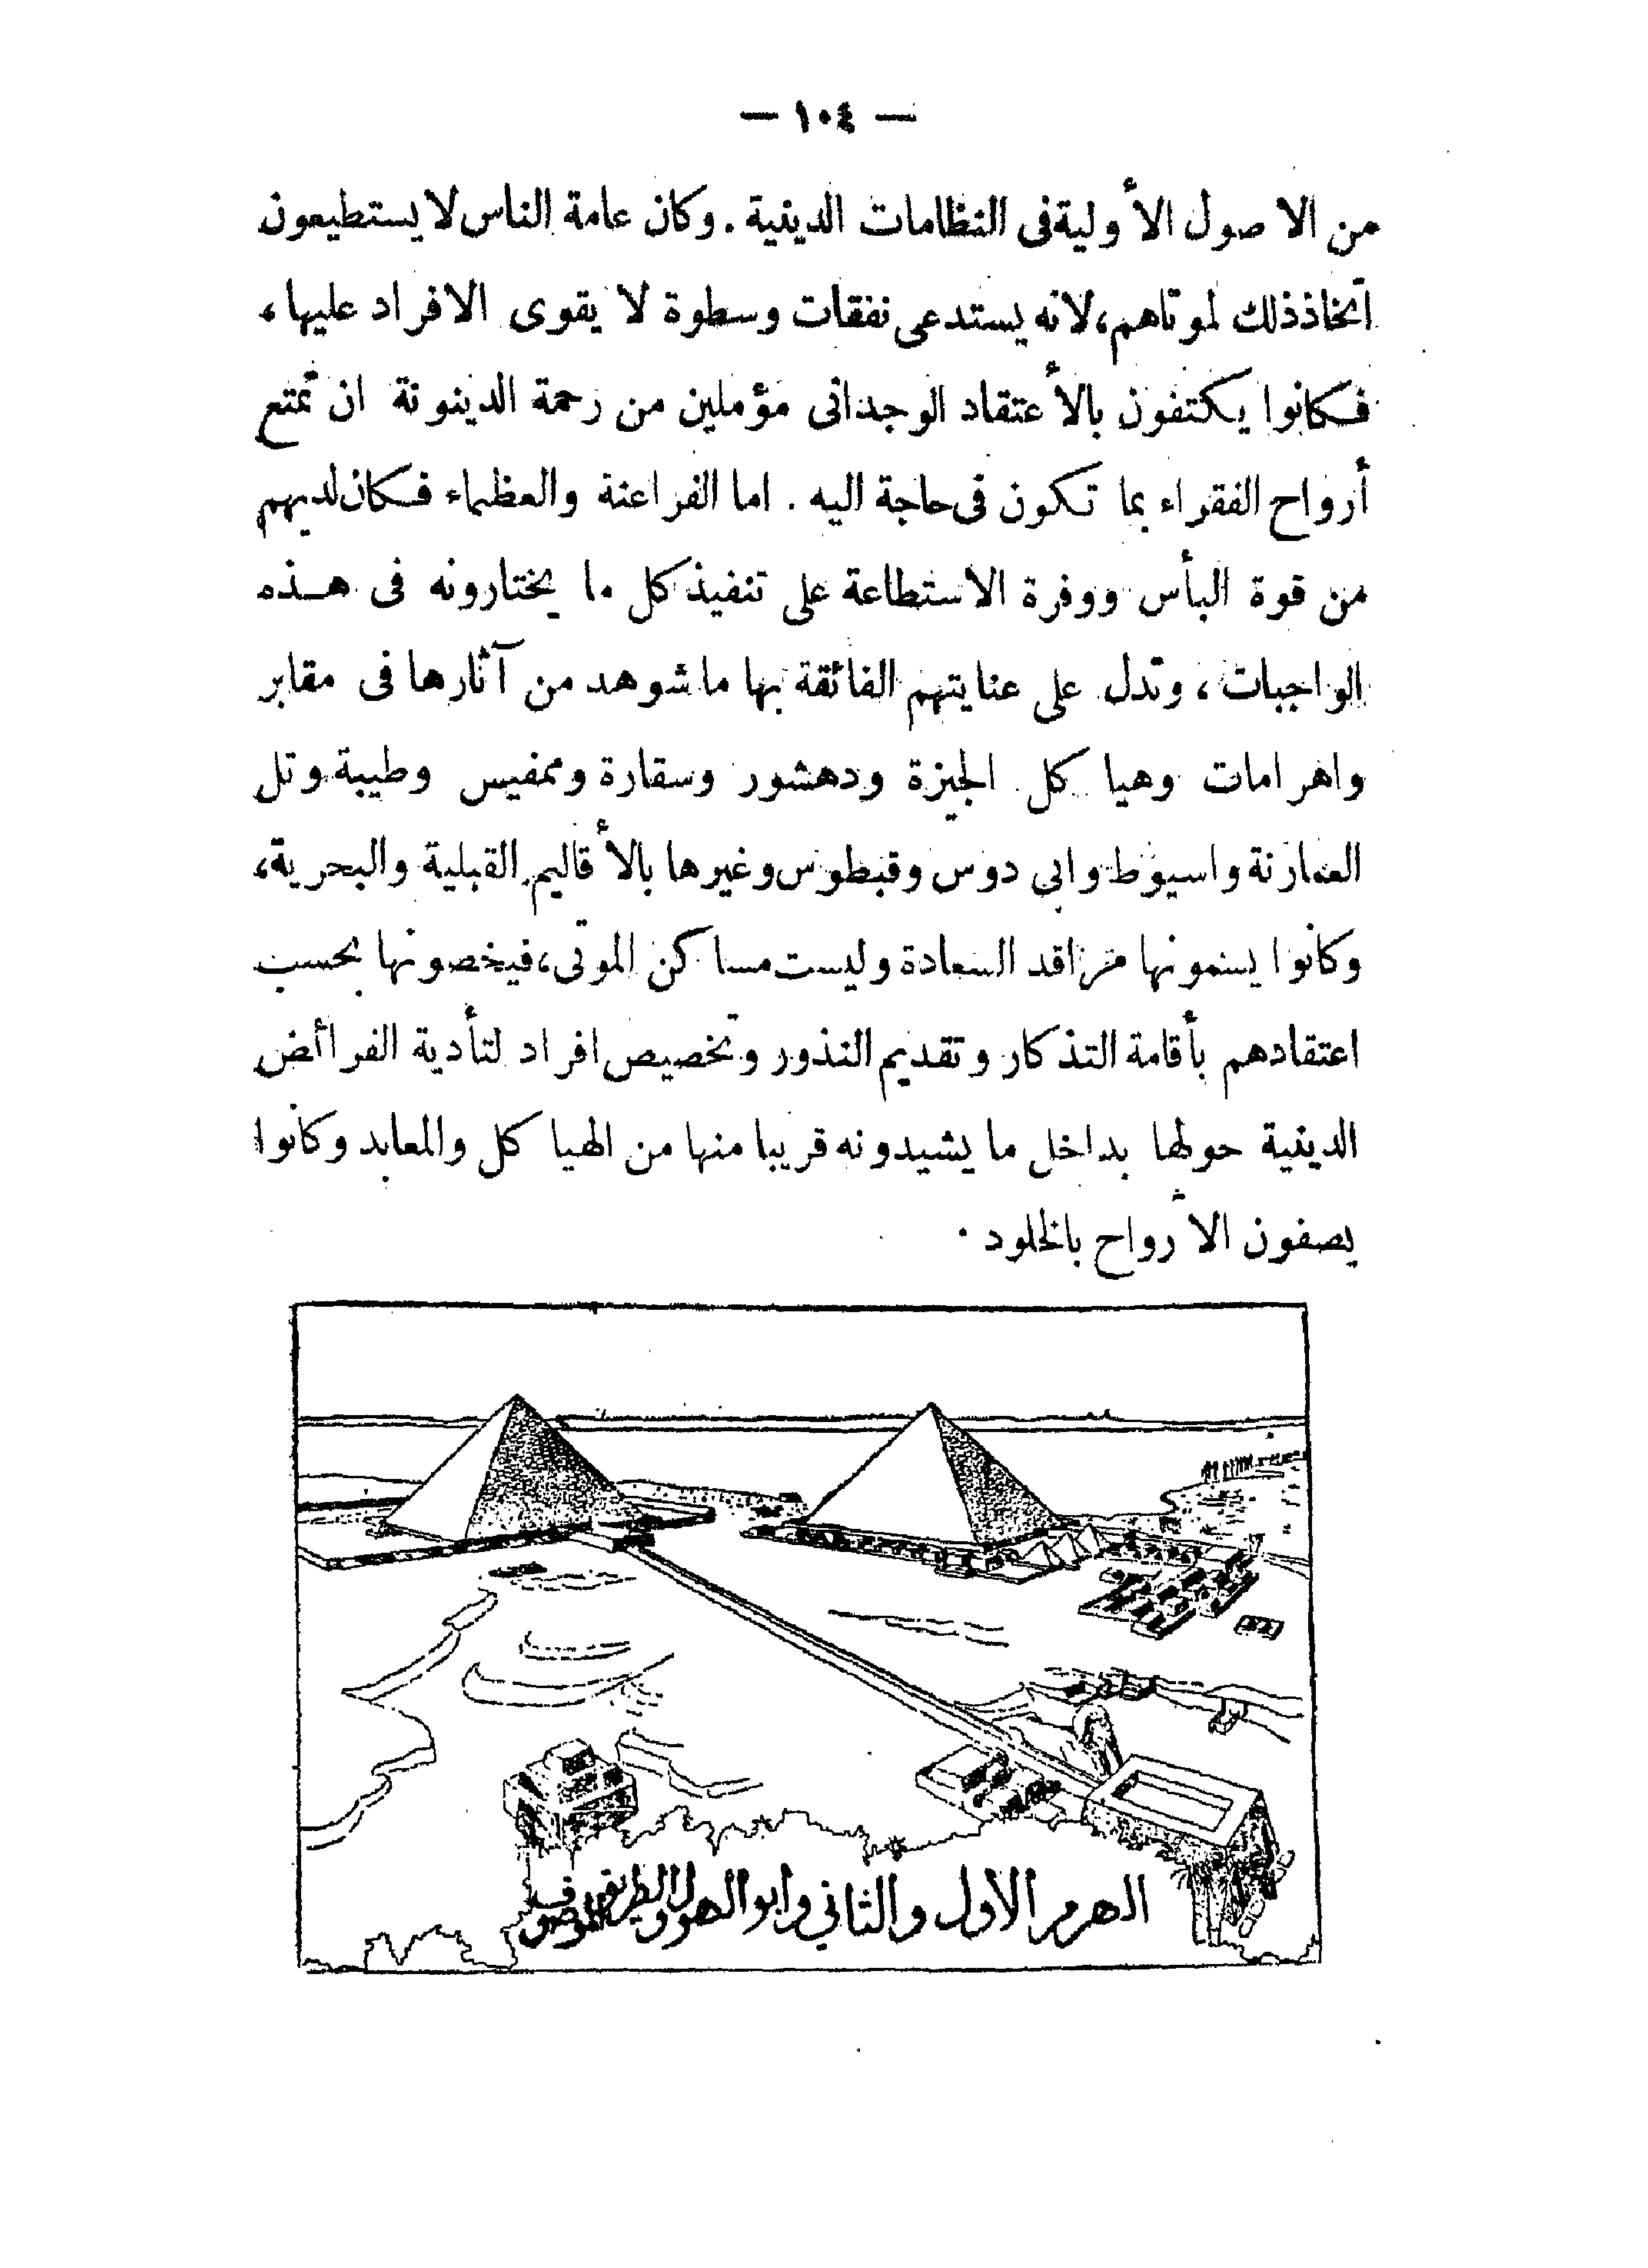 — ١٠٤ —
من الاصول الأولية فى النظامات الدينية . وكان عامة الناس لا يستطيعون
اتخاذ ذلك لموتاهم، لانه يستدعى نفقات وسطوة لا يقوى الافراد عليها،
فكانوا يكتفون بالأعتقاد الوجدانى مؤملين من رحمة الدينونة ان تمتع
أرواح الفقراء بما تكون فى حاجة اليه . اما الفراعنة والعظماء فكان لديهم
من قوة البأس ووفرة الاستطاعة على تنفيذ كل ما يختارونه فى هذه
الواجبات، وتدل على عنايتهم الفائقة بها ما شوهد من آثارها فى مقابر
واهرامات وهيا كل الجيزة ودهشور وسقارة وممفيس وطيبة وتل
العمارنة واسيوط وابى دوس وقبطوس وغيرها بالأقاليم القبلية والبحرية،
وكانوا يسمونها مراقد السعادة وليست مساكن الموتى، فيخصونها بحسب
اعتقادهم بأقامة التذكار وتقديم النذور وتخصيص افراد لتأدية الفرائض
الدينية حولها بداخل ما يشيدونه قريبا منها من الهيا كل والمعابد وكانوا
يصفون الأرواح بالخلود .
الهرم الأول والثاني وابو الهول والطريق المرصوف